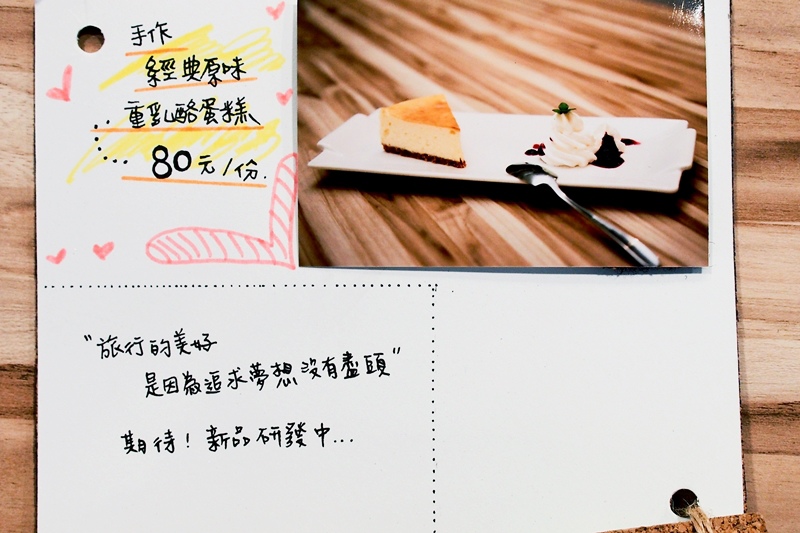 手作
經典原味
重乳酪蛋糕
80元/份.
"旅行的美好
是因為追求夢想沒有盡頭"
期待！新品研發中...